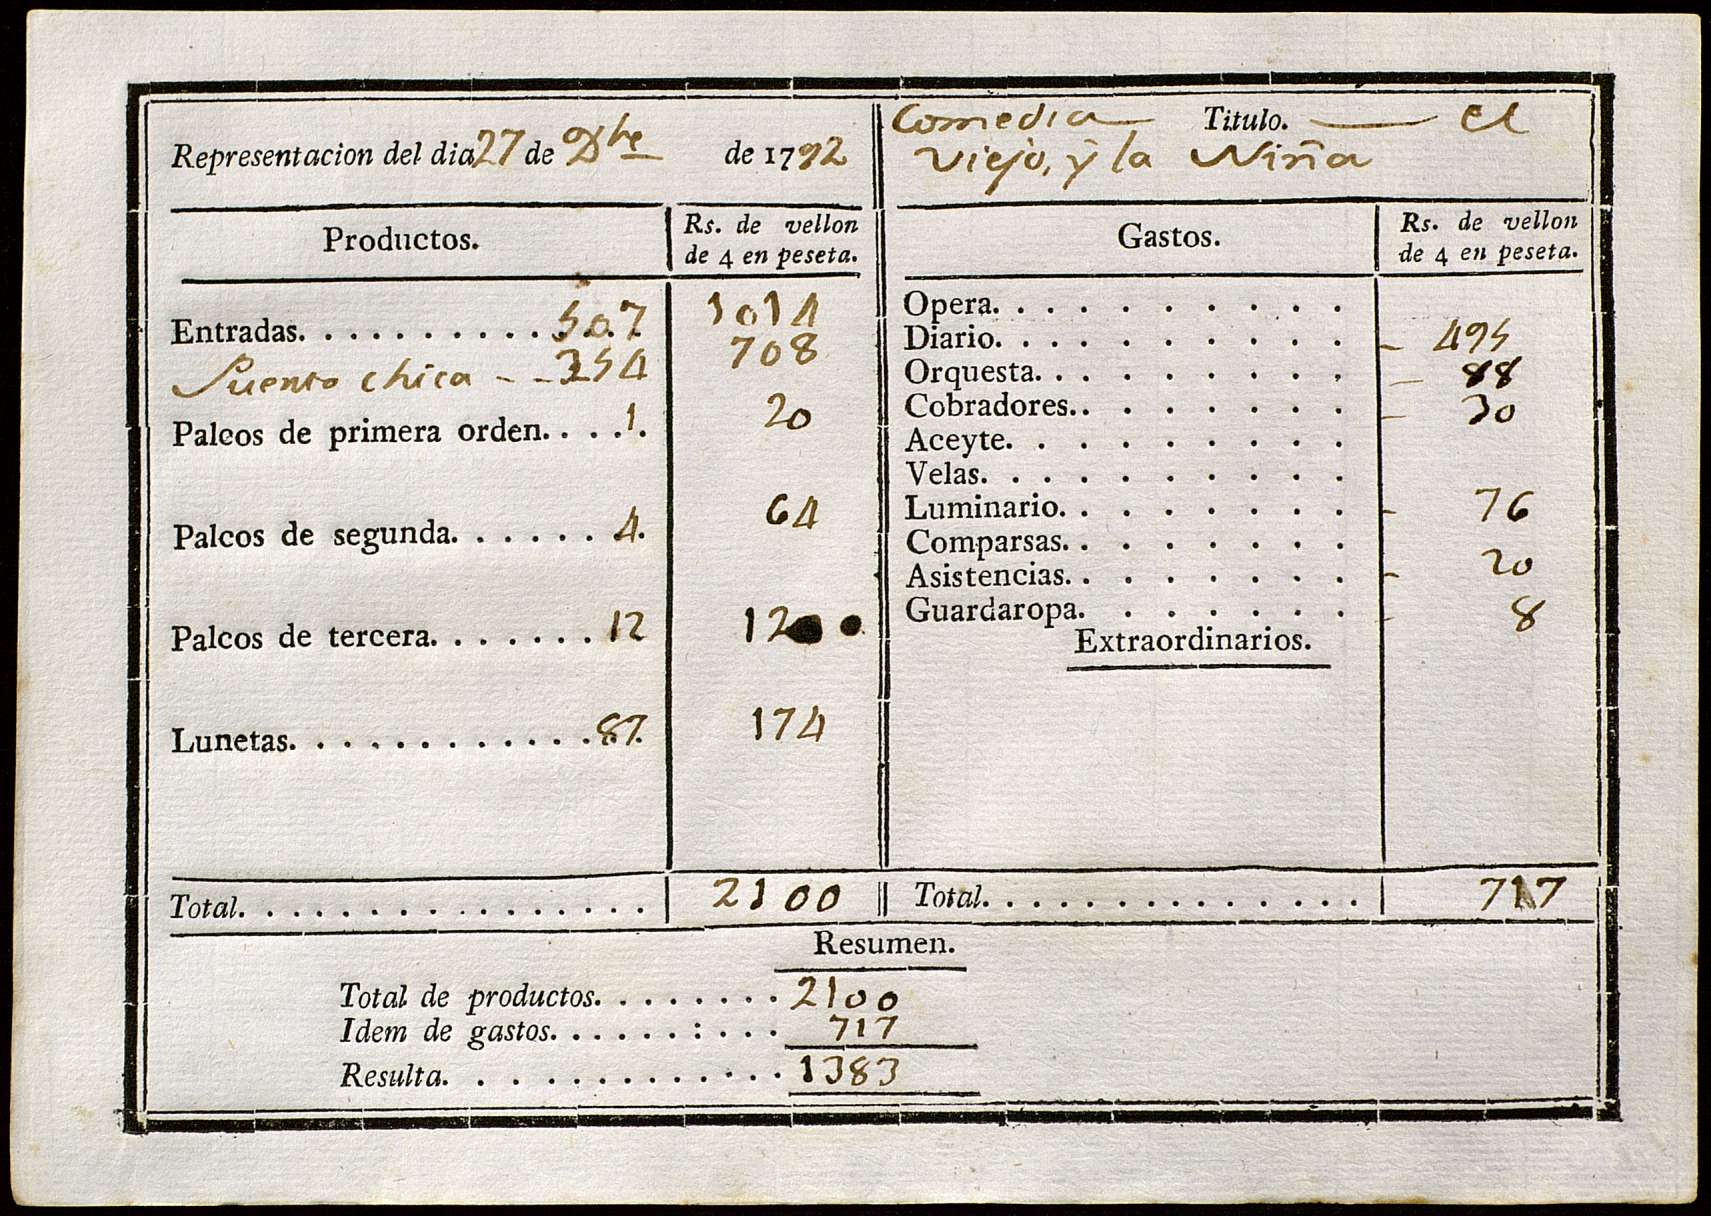 Representacion del dia 27 de 9bre de 1792
Comedia Titulo. el
Viejo, y la Niña
Productos.
Rs. de vellon
de 4 en peseta.
Entradas. 507 1014
Puerta chica - - 354 708
Palcos de primera orden. 1 20
Palcos de segunda. 4 64
Palcos de tercera. 12 120
Lunetas. 87 174
Total. 2100
Gastos.
Rs. de vellon
de 4 en peseta.
Opera.
Diario. 495
Orquesta. 88
Cobradores. 30
Aceyte.
Velas.
Luminario. 76
Comparsas.
Asistencias. 20
Guardaropa. 8
Extraordinarios.
Total. 717
Resumen.
Total de productos. 2100
Idem de gastos. 717
Resulta. 1383